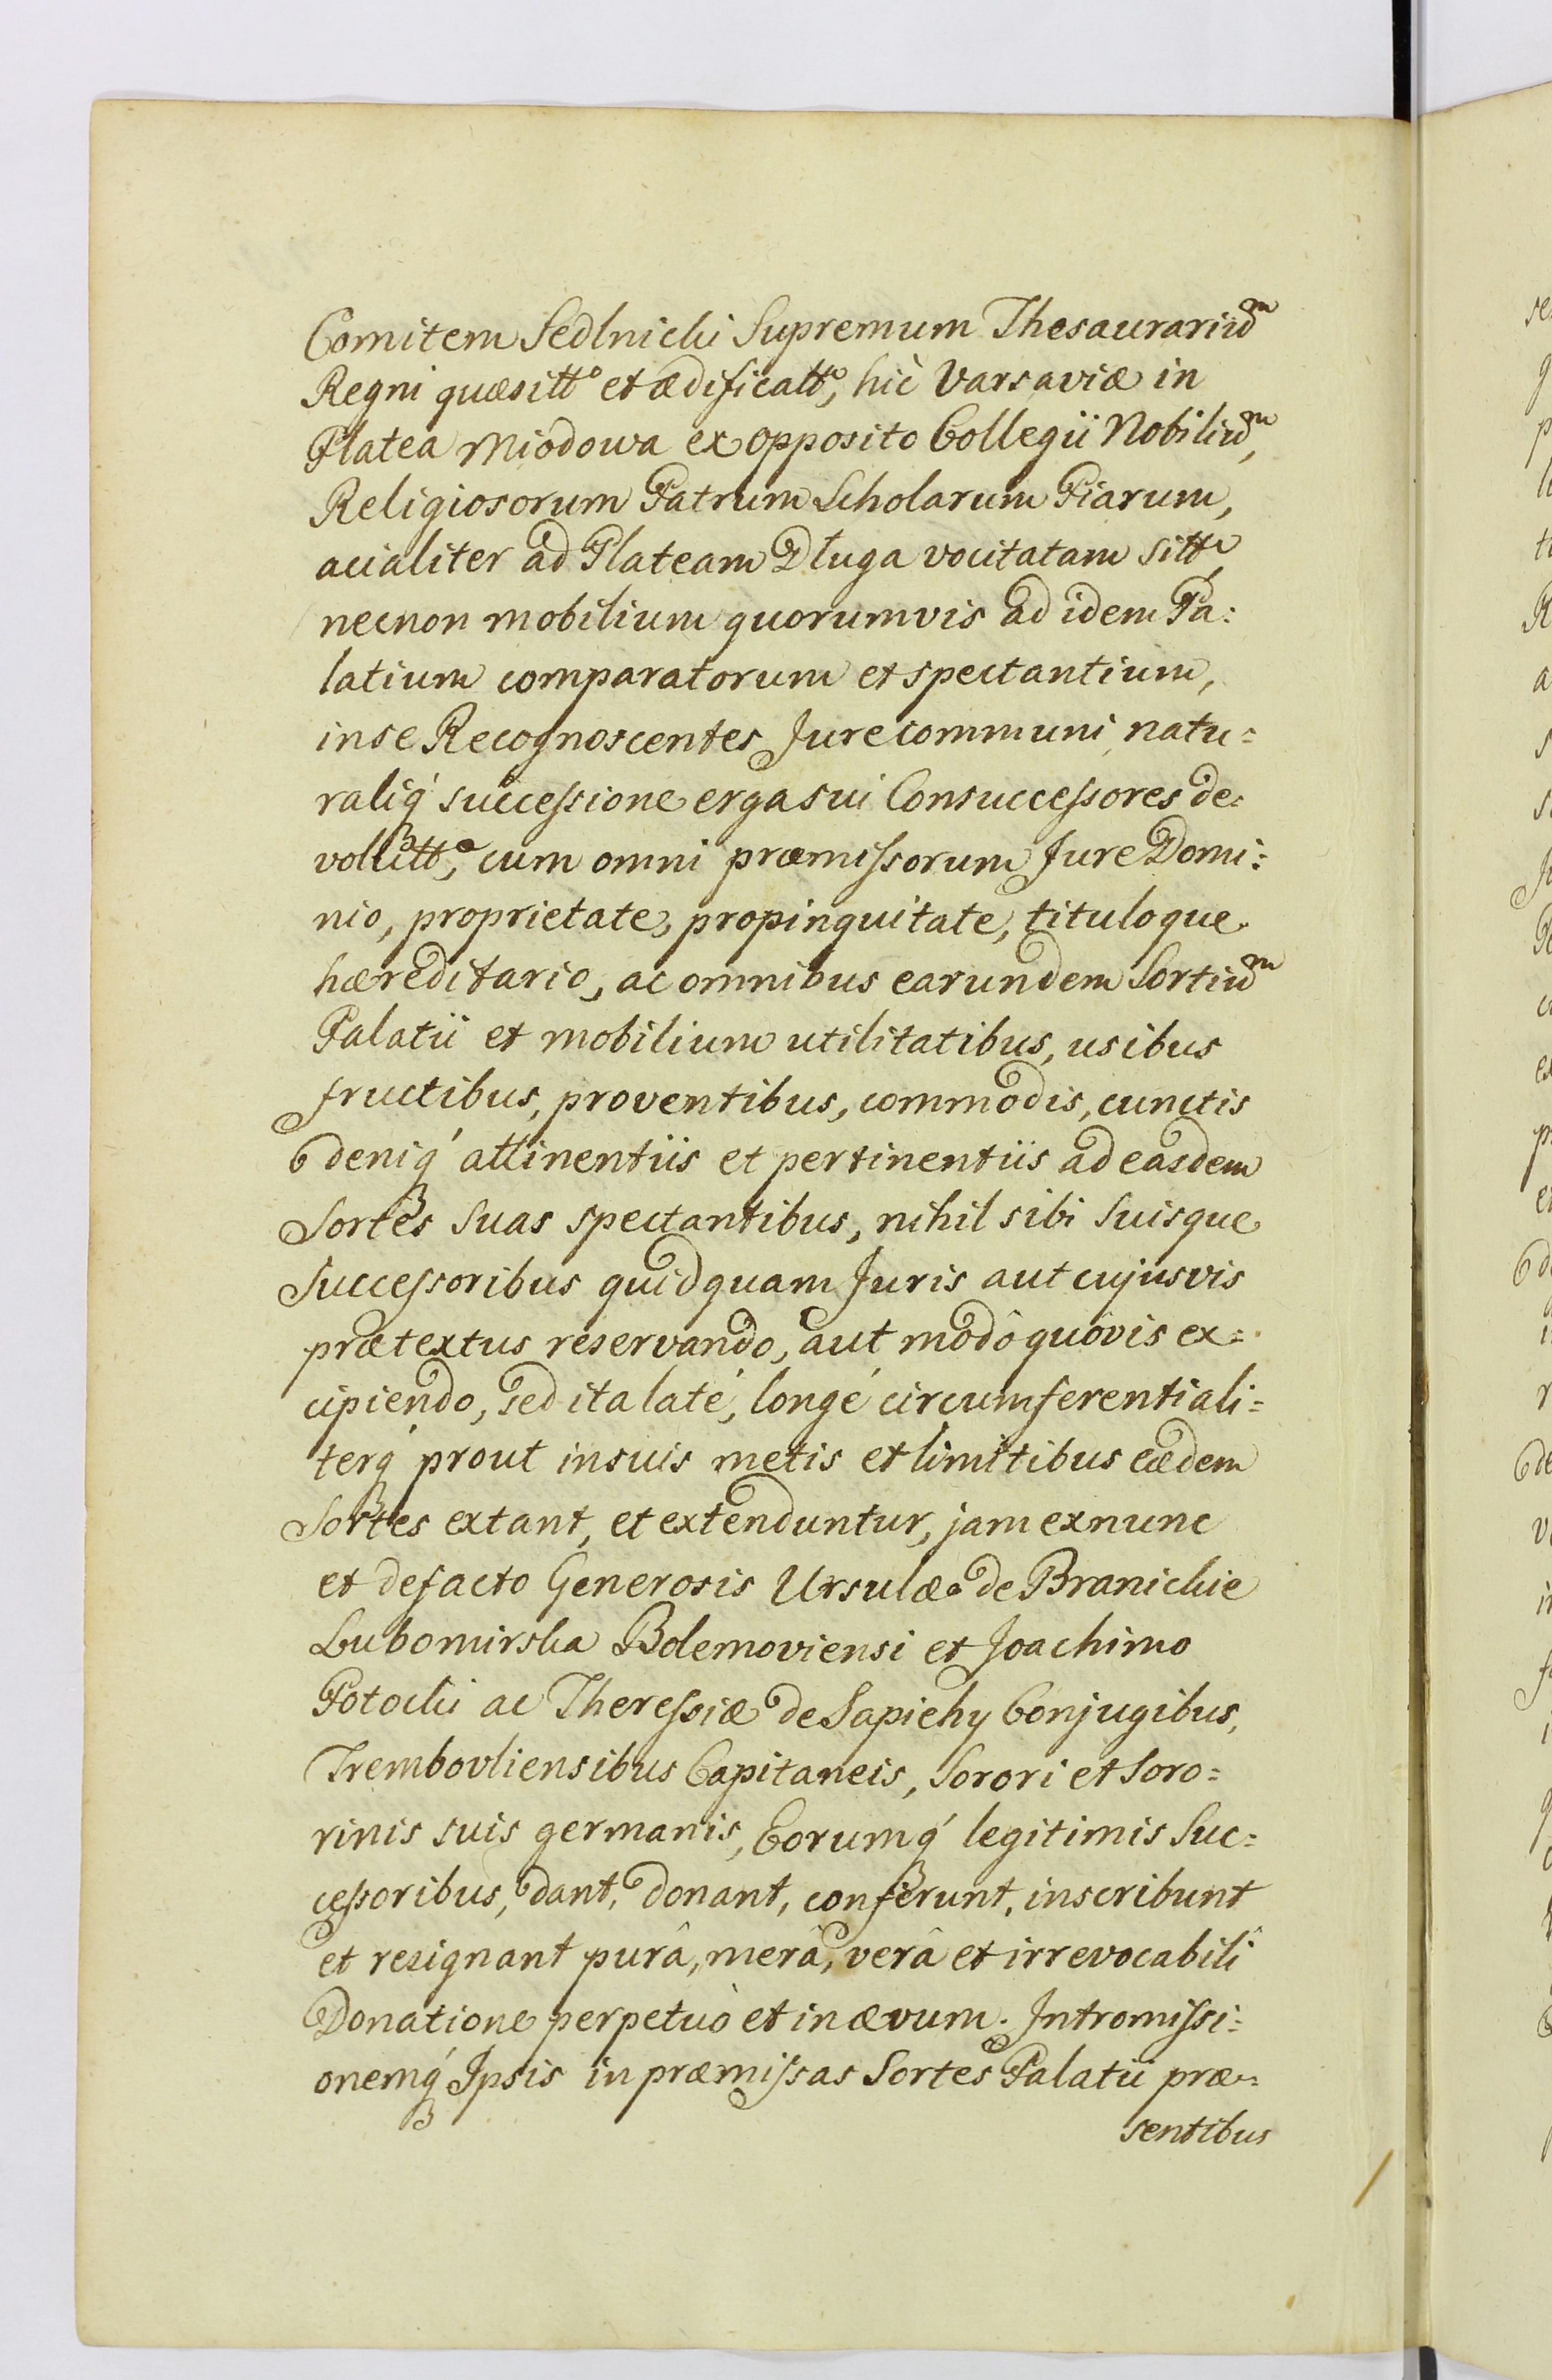 Comitem Sedlnicki Supremum Thesaurariũm
Regni quæsitt° et ædificatt°, hìc Varsaviæ in
Platea Miodowa ex opposito Collegii Nobiliũm,
Religiosorum Patrum Scholarum Piarum,
acialiter ad Plateam Długa vocitatam sitti
necnon mobilium quorumvis ad idem Pa:
latium comparatorum et spectantium,
in se Recognoscentes Jure communi natu:
raliq́ successione erga sui Consuccessores de:
volutt°, cum omni præmissorum Jure Domi:
nio, proprietate, propinquitate, tituloque
hæreditario, ac omnibus earundem Sortiũm
Palatii et mobilium utilitatibus, usibus
fructibus, proventibus, commodis, cunctis
deniq́ attinentiis et pertinentiis ad easdem
Sortes suas spectantibus, nihil sibi suisque
Successoribus quidquam Juris aut cujusvis
prætextus reservando, aut modô quôvis ex:
cipiendo, sed ita laté, longé circumferentiali:
terq́ prout in suis metis et limitibus eædem
Sortes extant, et extenduntur, jam ex nunc
et de facto Generosis Ursulæ de Branickie
Lubomirska Bolemoviensi et Joachimo
Potocki ac Theressiæ de Sapiehy Conjugibus,
Trembovliensibus Capitaneis, Sorori et Soro:
rinis suis germanis, Eorumq́ legitimis Suc:
cessoribus, dant, donant, conferunt, inscribunt
et resignant purâ, merâ, verâ et irrevocabili
Donatione perpetuò et in ævum. Intromissi:
onemq́ Ipsis in præmissas Sortes Palatii præ:
sentibus